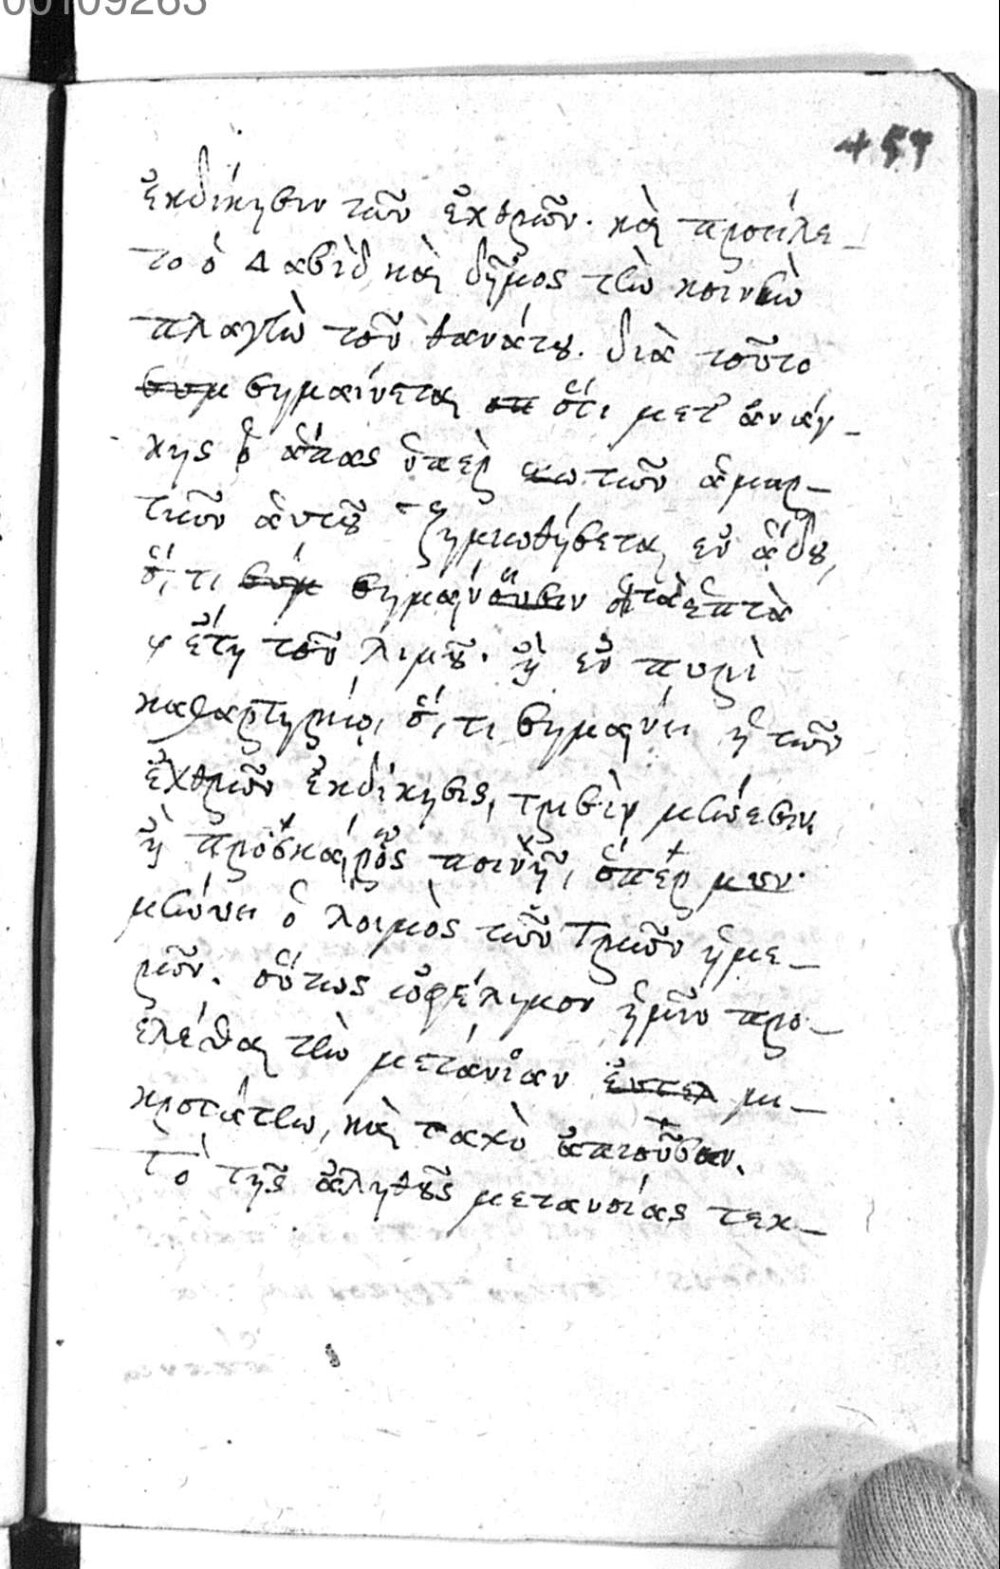 00109263
457
ἐκδίκησιν τῶν ἐχθρῶν. καὶ προείλε-
το ὁ Δαβὶδ καὶ δῆμος τὴν κοινὴν
πλαγὴν τοῦ θανάτου. διὰ τοῦτο
σημαίνεται ὅτι μετ' ἀνάγ-
κης ὁ ἅπας ὑπὲρ τῶν ἁμαρ-
τιῶν αὐτοῦ ζημιωθήσεται ἐν ᾅδου,
ὅ, τι σημαίν τὰ ἑπτὰ
ἔτη τοῦ λιμοῦ. ἢ ἐν πυρὶ
καθαρτηρίῳ, ὅ, τι σημαίνει ἡ τῶν
ἐχθρῶν ἐκδίκησις, τρισὶν μήνεσιν,
ἢ πρόσκαιρος ποινῇ, ὅπερ μην
μήνυει ὁ λοιμὸς τῶν τριῶν ἡμε-
ρῶν. οὕτως ὠφέλημον ἡμῖν προ-
ελέσθαι τὴν μετάνιαν μι-
κροτάτην, καὶ ταχὺ ἀπιοῦσαν.
Τὸ τῆς ἀληθοῦς μετανοίας τεκ-